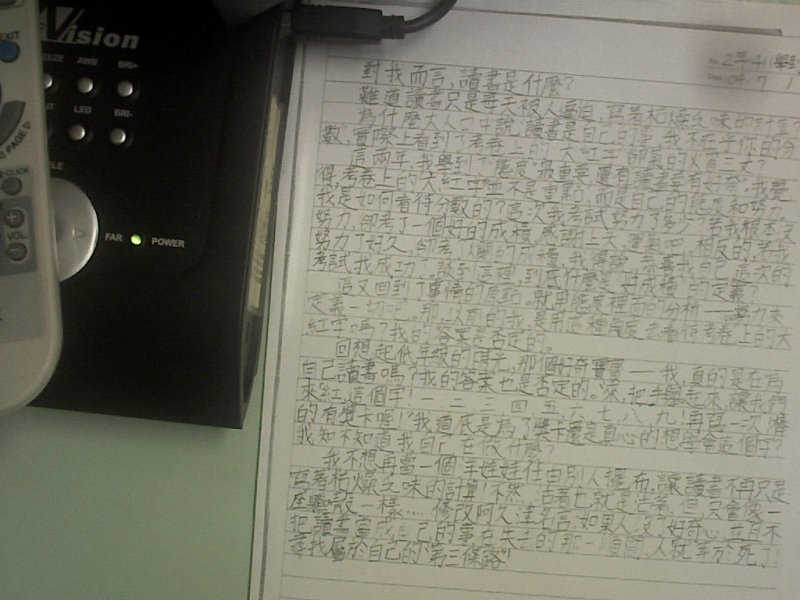 EXIT
PAGE
CLICK
VOL
Vision
EEZE AWB BRI+
LED BRI-
ELE
FAR POWER
2年4
7 1
對我而言,讀書是什麼?
難道讀書只是每天被人逼迫,寫著枯燥乏味的計算?
為什麼大人一 說,讀書是自己的事,我不在乎你的分
數,實際上看到了考卷上的大紅字 的火冒三丈?
這兩年,我學到了態度最重要,還有讀書要有好奇。我覺
得,考卷上的大紅字並不是重點,而是自己的態度和努力。
我是如何看待分數的?這次我考試努力了多少?若我根本沒
努力,卻考了一個好的成績,
努力了好久,卻考 爛的成績,我 自己,這次的
考試我成功了。談到這裡,到底什麼是好成績的定義?
這又回到了事情的原點。就用態度裡面的分析——努力來
定義一切吧。那,以前的我,是用這種角度去看待考卷上的大
紅字嗎?我的答案是否定的。
回想起低年級的時光,那個好奇寶寶——我,真的是在為
自己讀書嗎?我的答案也是否定的。「來,把手舉起來,讓我們
來 紅這個字!一、二、三、四、五、六、七、八、九!再寫一次!
的有獎卡喔!」我到底是為了獎卡還是真心的想學會這個字?
我知不知道我自己在做什麼?
我不想再當一個洋娃娃任由別人擺布,讓讀書不再只是
寫著枯燥乏味的計算!不然,活著也就是
一樣……修改阿久津名言:如果人沒了好奇心,並且不
把讀書當成自己的事,在失去的那一瞬間,人就等於死了!
尋找屬於自己的「第三條路」